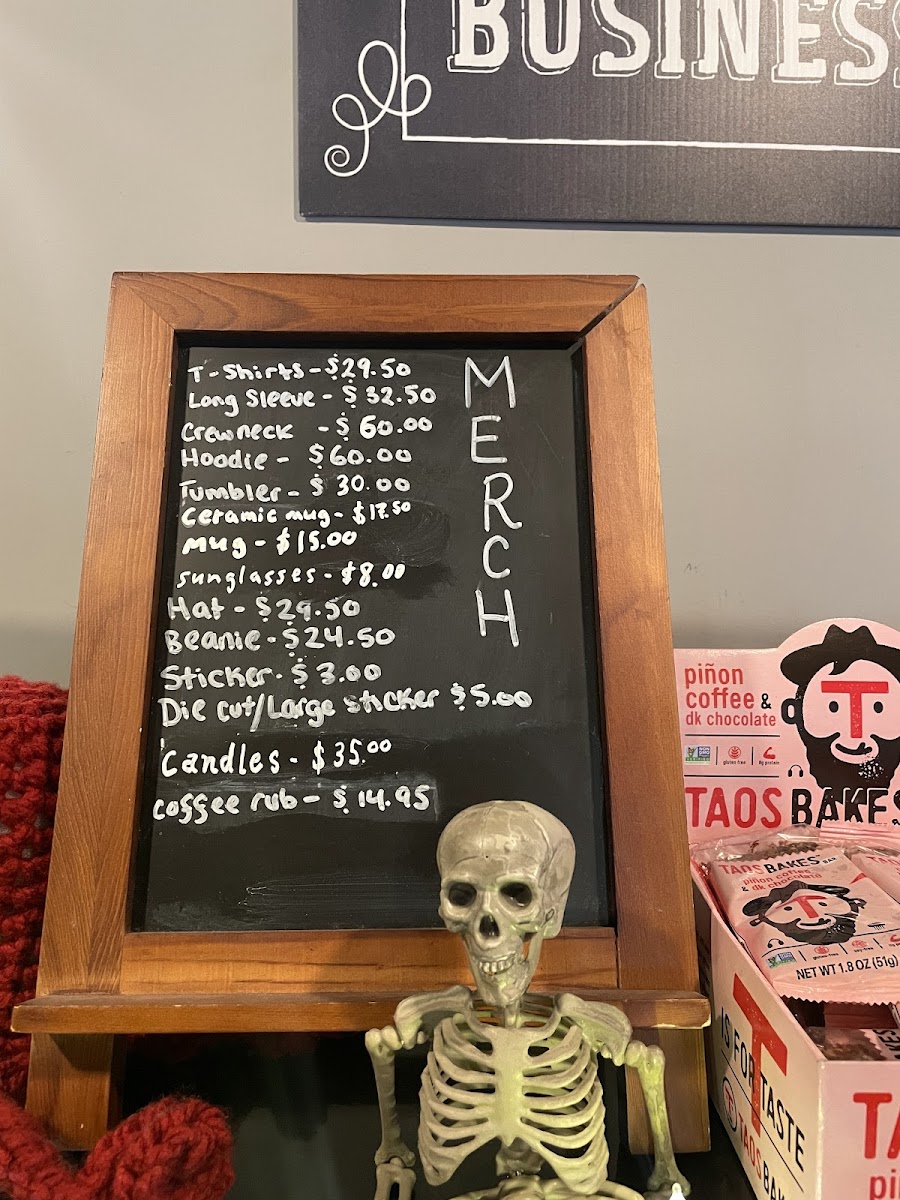 BUSINESS
T-Shirts - $29.50
Long Sleeve - $32.50
Crewneck - $60.00
Hoodie - $60.00
Tumbler - $30.00
Ceramic mug - $17.50
Mug - $15.00
sunglasses - $8.00
Hat - $29.50
Beanie - $24.50
Sticker - $3.00
Die cut/Large sticker $5.00
Candles - $35.00
coffee rub - $14.95
MERCH
piñon
coffee &
dk chocolate
gluten free
8g protein
T
TAOS BAKES
TAOSBAKES BAR
piñon coffee
& dk chocolate
T
gluten-free
NET WT 1.8 OZ (51g)
T
IS FOR TASTE